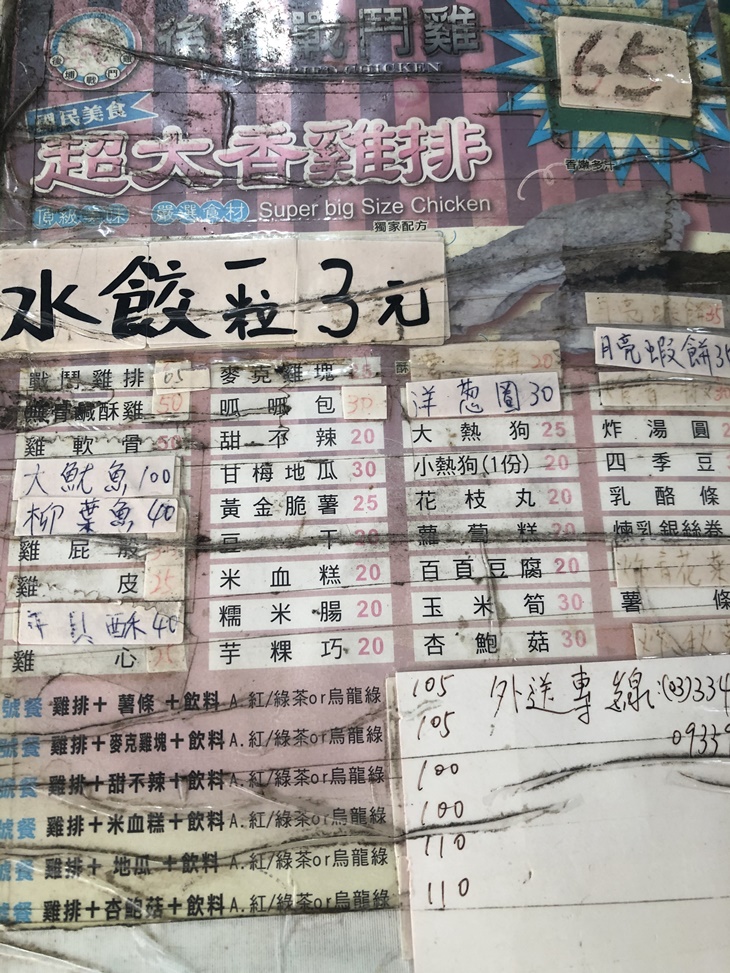 後埔戰鬥雞
FRIED CHICKEN
65
國民美食
超大香雞排
香嫩多汁
頂級美味 嚴選食材 Super big Size Chicken
獨家配方
水餃一粒3元
月亮蝦餅35
戰鬥雞排 65
無骨鹹酥雞 50
雞軟骨 50
大魷魚100
柳葉魚40
雞屁股
雞皮 35
干貝酥40
雞心 30
麥克雞塊
呱呱包 30
甜不辣 20
甘梅地瓜 30
黃金脆薯 25
豆干 20
米血糕 20
糯米腸 20
芋粿巧 20
洋葱圈30
大熱狗 25
小熱狗(1份) 20
花枝丸 20
蘿蔔糕 20
百頁豆腐 20
玉米筍 30
杏鮑菇 30
炸湯圓
四季豆
乳酪條
煉乳銀絲卷
薯條
號餐 雞排+薯條+飲料 A.紅/綠茶or烏龍綠 105
號餐 雞排+麥克雞塊+飲料 A.紅/綠茶or烏龍綠 105
號餐 雞排+甜不辣+飲料 A.紅/綠茶or烏龍綠 100
號餐 雞排+米血糕+飲料 A.紅/綠茶or烏龍綠 100
號餐 雞排+地瓜+飲料 A.紅/綠茶or烏龍綠 110
號餐 雞排+杏鮑菇+飲料 A.紅/綠茶or烏龍綠 110
外送專線:(03)334
0933